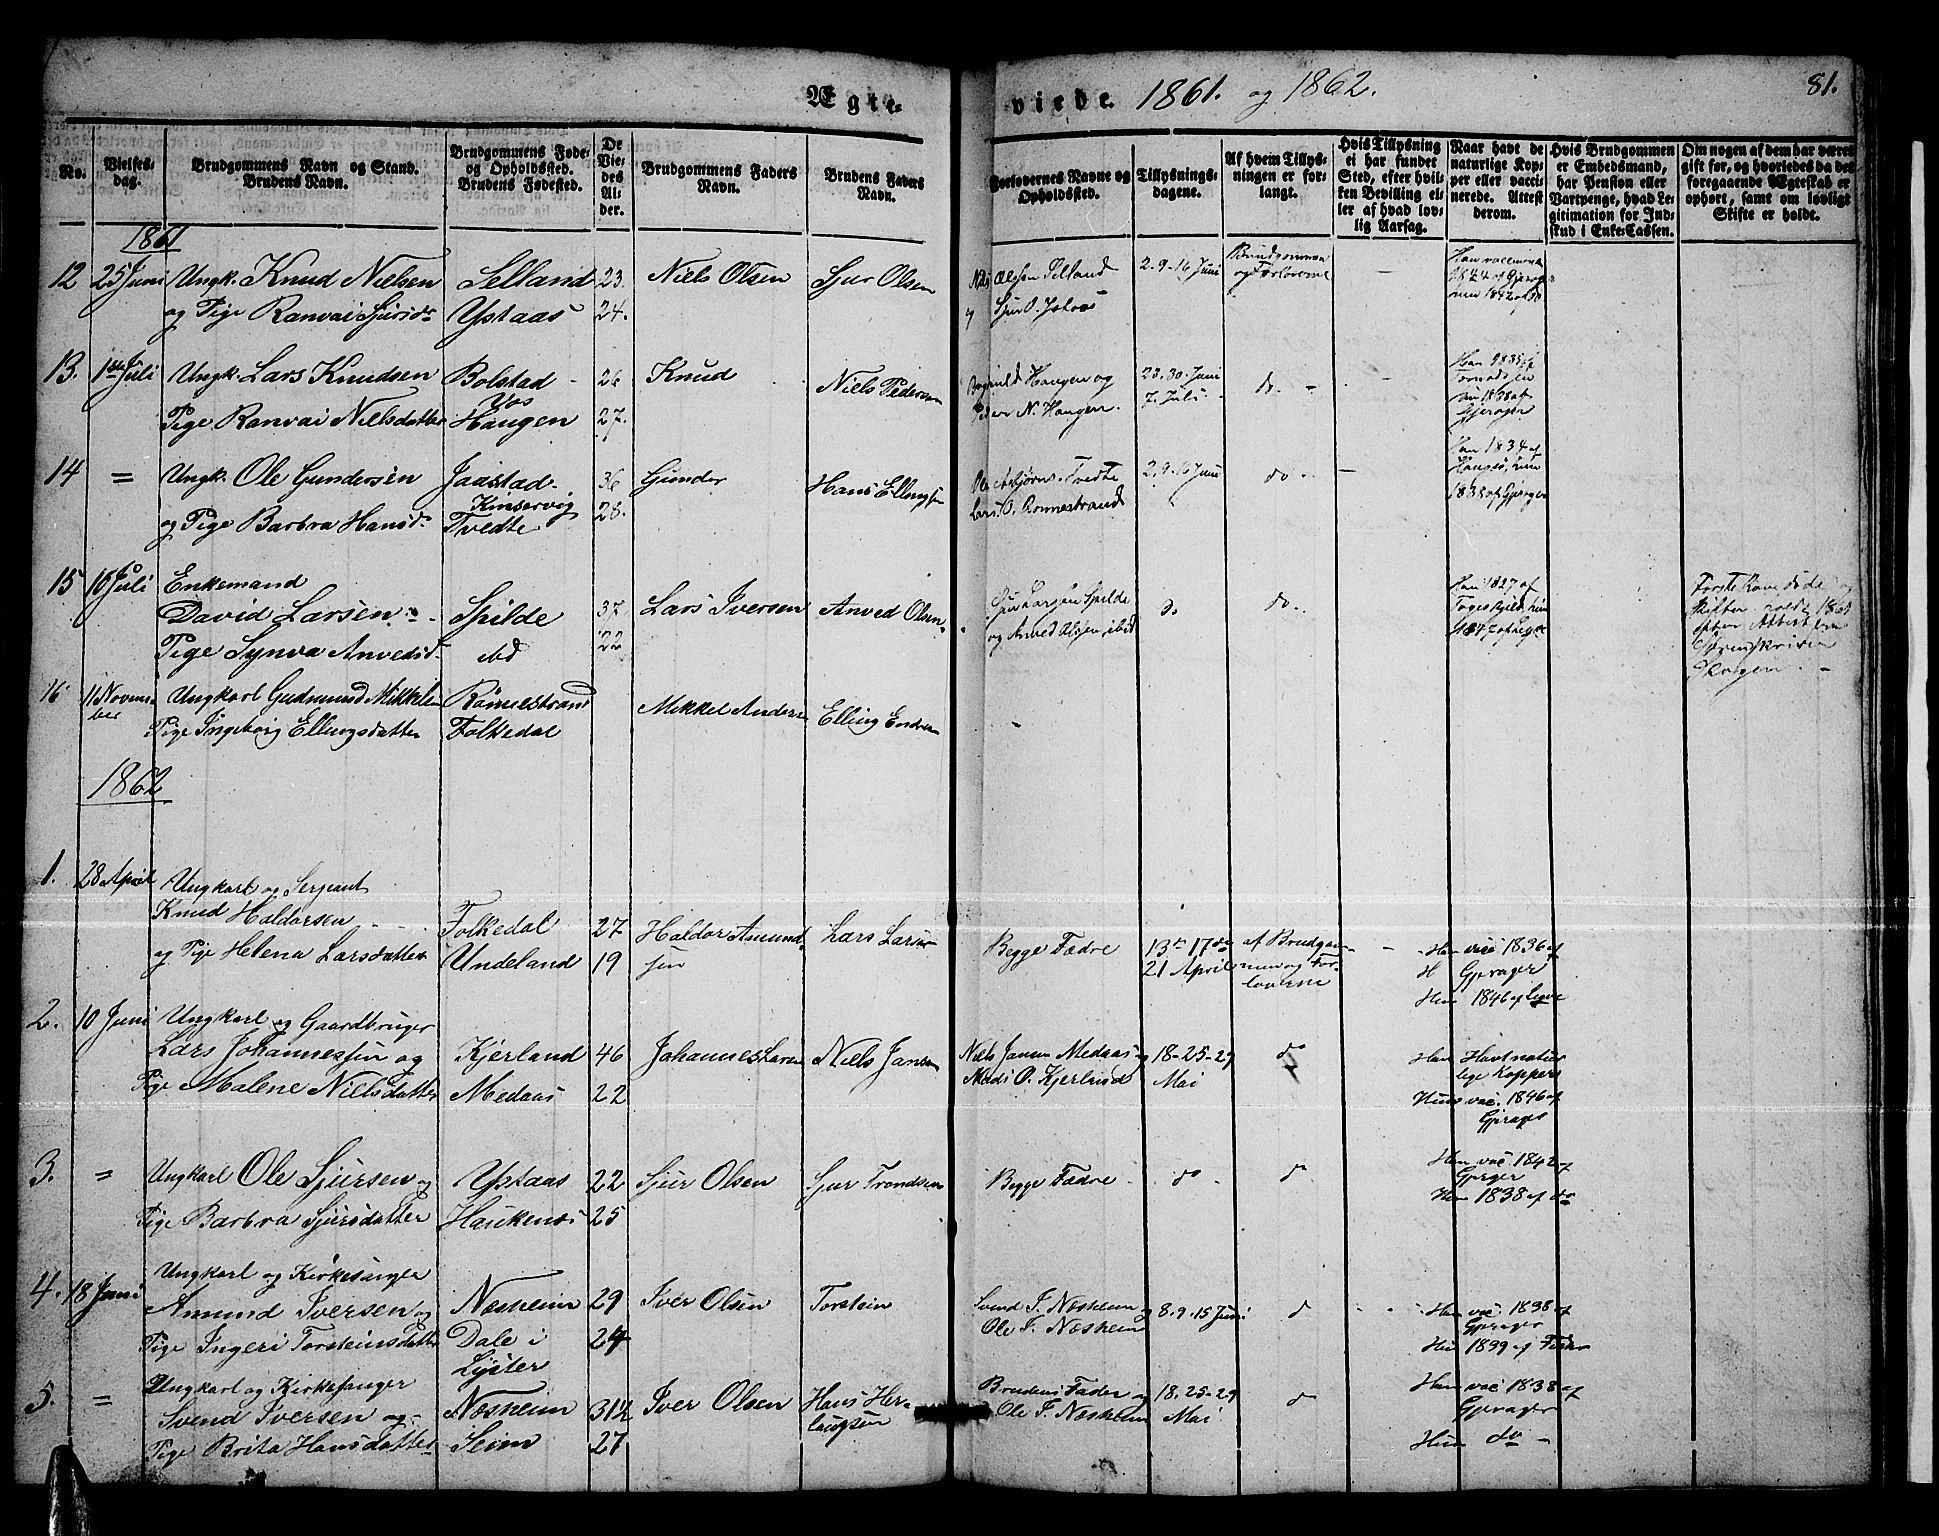 Ægte-
viede. 1861. og 1862.
81.
No.
Vielses-
dag.
Brudgommens Navn og Stand.
Brudens Navn.
Brudgommens Føde-
og Opholdssted.
Brudens Fødested.
De
Vie-
des
Al-
der.
Brudgommens Faders
Navn.
Brudens Faders
Navn.
Forlovernes Navne og
Opholdssted.
Tillysnings-
dagene.
Af hvem Tillys-
ningen er for-
langt.
Hvis Tillysning
ei har fundet
Sted, efter hvil-
ken Bevilling el-
ler af hvad lov-
lig Aarsag.
Naar havt de
naturlige Kop-
per eller vacci-
nerede. Attest
derom.
Hvis Brudgommen
er Embedsmand,
har Pension eller
Vartpenge, hvad Le-
gitimation for Ind-
skud i Enke-Cassen.
Om nogen af dem har været
gift før, og hvorledes da det
foregaaende Ægteskab er
ophørt, samt om lovligt
Skifte er holdt.
1861
12 25 Juni Ungk. Knud Nielsen Selland 23. Niels Olsen Sjur Olsen
og Pige Ranvai Sjursdr Ystaas 24.
Niels Olsen Selland
Sjur O. Ystaas
2-9-16 Juni
Brudgommen
og Forloverne
1844 af Gjerager
hun 1842 af do
13. 1ste Juli Ungk. Lars Knudsen Bolstad 26 Knud Niels Pedersen
Vos
Pige Ranvai Nielsdatter Haugen 27.
Haugen og
Peder N. Haugen.
23. 30. Juni
7. Juli
do
Han 1835 af
hun 1838 af
Gjerager
14 = Ungk. Ole Gundersen Jaastad 36 Gunder Hans Ellingsen
Kinservig
og Pige Barbra Hansdr Tvedte 28.
Ole Asbjørns. Tvedte
Lars O. Rønnestrand
2.9.16 Juni
do
Han 1834 af
hun
1835 af Gjerager
15 16 Juli Enkemand
David Larsen Spilde 37 Lars Iversen Anved Olsen
Pige Synva Anvedsd. ibd 22
Sjur Larsen Spilde
og Anved Olsen ibid
do
do
Han 1827 af
hun
1847 af Lege
Første Kone døde og
Skiften holdt 1861
efter Attest fra
Sorenskriver
16 11 Novem-
ber
Ungkarl Gudmund Mikkelsen Rønnestrand Mikkel Anders Elling Endresen
Pige Ingeborg Ellingsdatter Folkedal
1862
1. 28 April Ungkarl og Serjeant
Knud Haldorsen Folkedal 27 Haldor Amund- Lars Larsen
og Pige Helena Larsdatter Undeland 19 sen
Begge Fædre
13de 17de
21 April
af Brudgom-
men og For-
loverne
Han vac. 1836 af
H Gjerager
Hun 1846 af Lege
2. 10 Juni Ungkarl og Gaardbruger
Lars Johannessen og Kjerland 46 Johannes Larsen Niels Jansen
Pige Malene Nielsdatter Medaas 22
Niels Jansen Medaas og
Mads O. Kjerland
18-25-29
Mai
do
Han Havt natur
lige Kopper
Hun vac. 1846 af
Gjerager
3. = Ungkarl Ole Sjursen og Ystaas 22 Sjur Olsen Sjur Trondsen
Pige Barbra Sjursdatter Haukenæs 25
Begge Fædre
do
do
Han vac. 1842 af
Gjerager
Hun 1838 af do
4. 18 Juni Ungkarl og Kirkesanger
Amund Iversen og Næsheim 29 Iver Olsen Torstein
Pige Ingeri Torsteinsdatter Dale i 24
Lyster
Svend I. Næsheim og
Ole I. Næsheim
8. 9. 15 Juni
do
Han vac. 1838 af
Gjerager
Hun 1839 af
5. = Ungkarl og Kirkesanger
Svend Iversen og Næsheim 31½ Iver Olsen Hans Her-
laugsen
Pige Brita Hansdatter Seim 27
Brudens Fader og
Ole I. Næsheim
18. 25-29
Mai
do
Han vac. 1838 af
Gjerager
Hun do